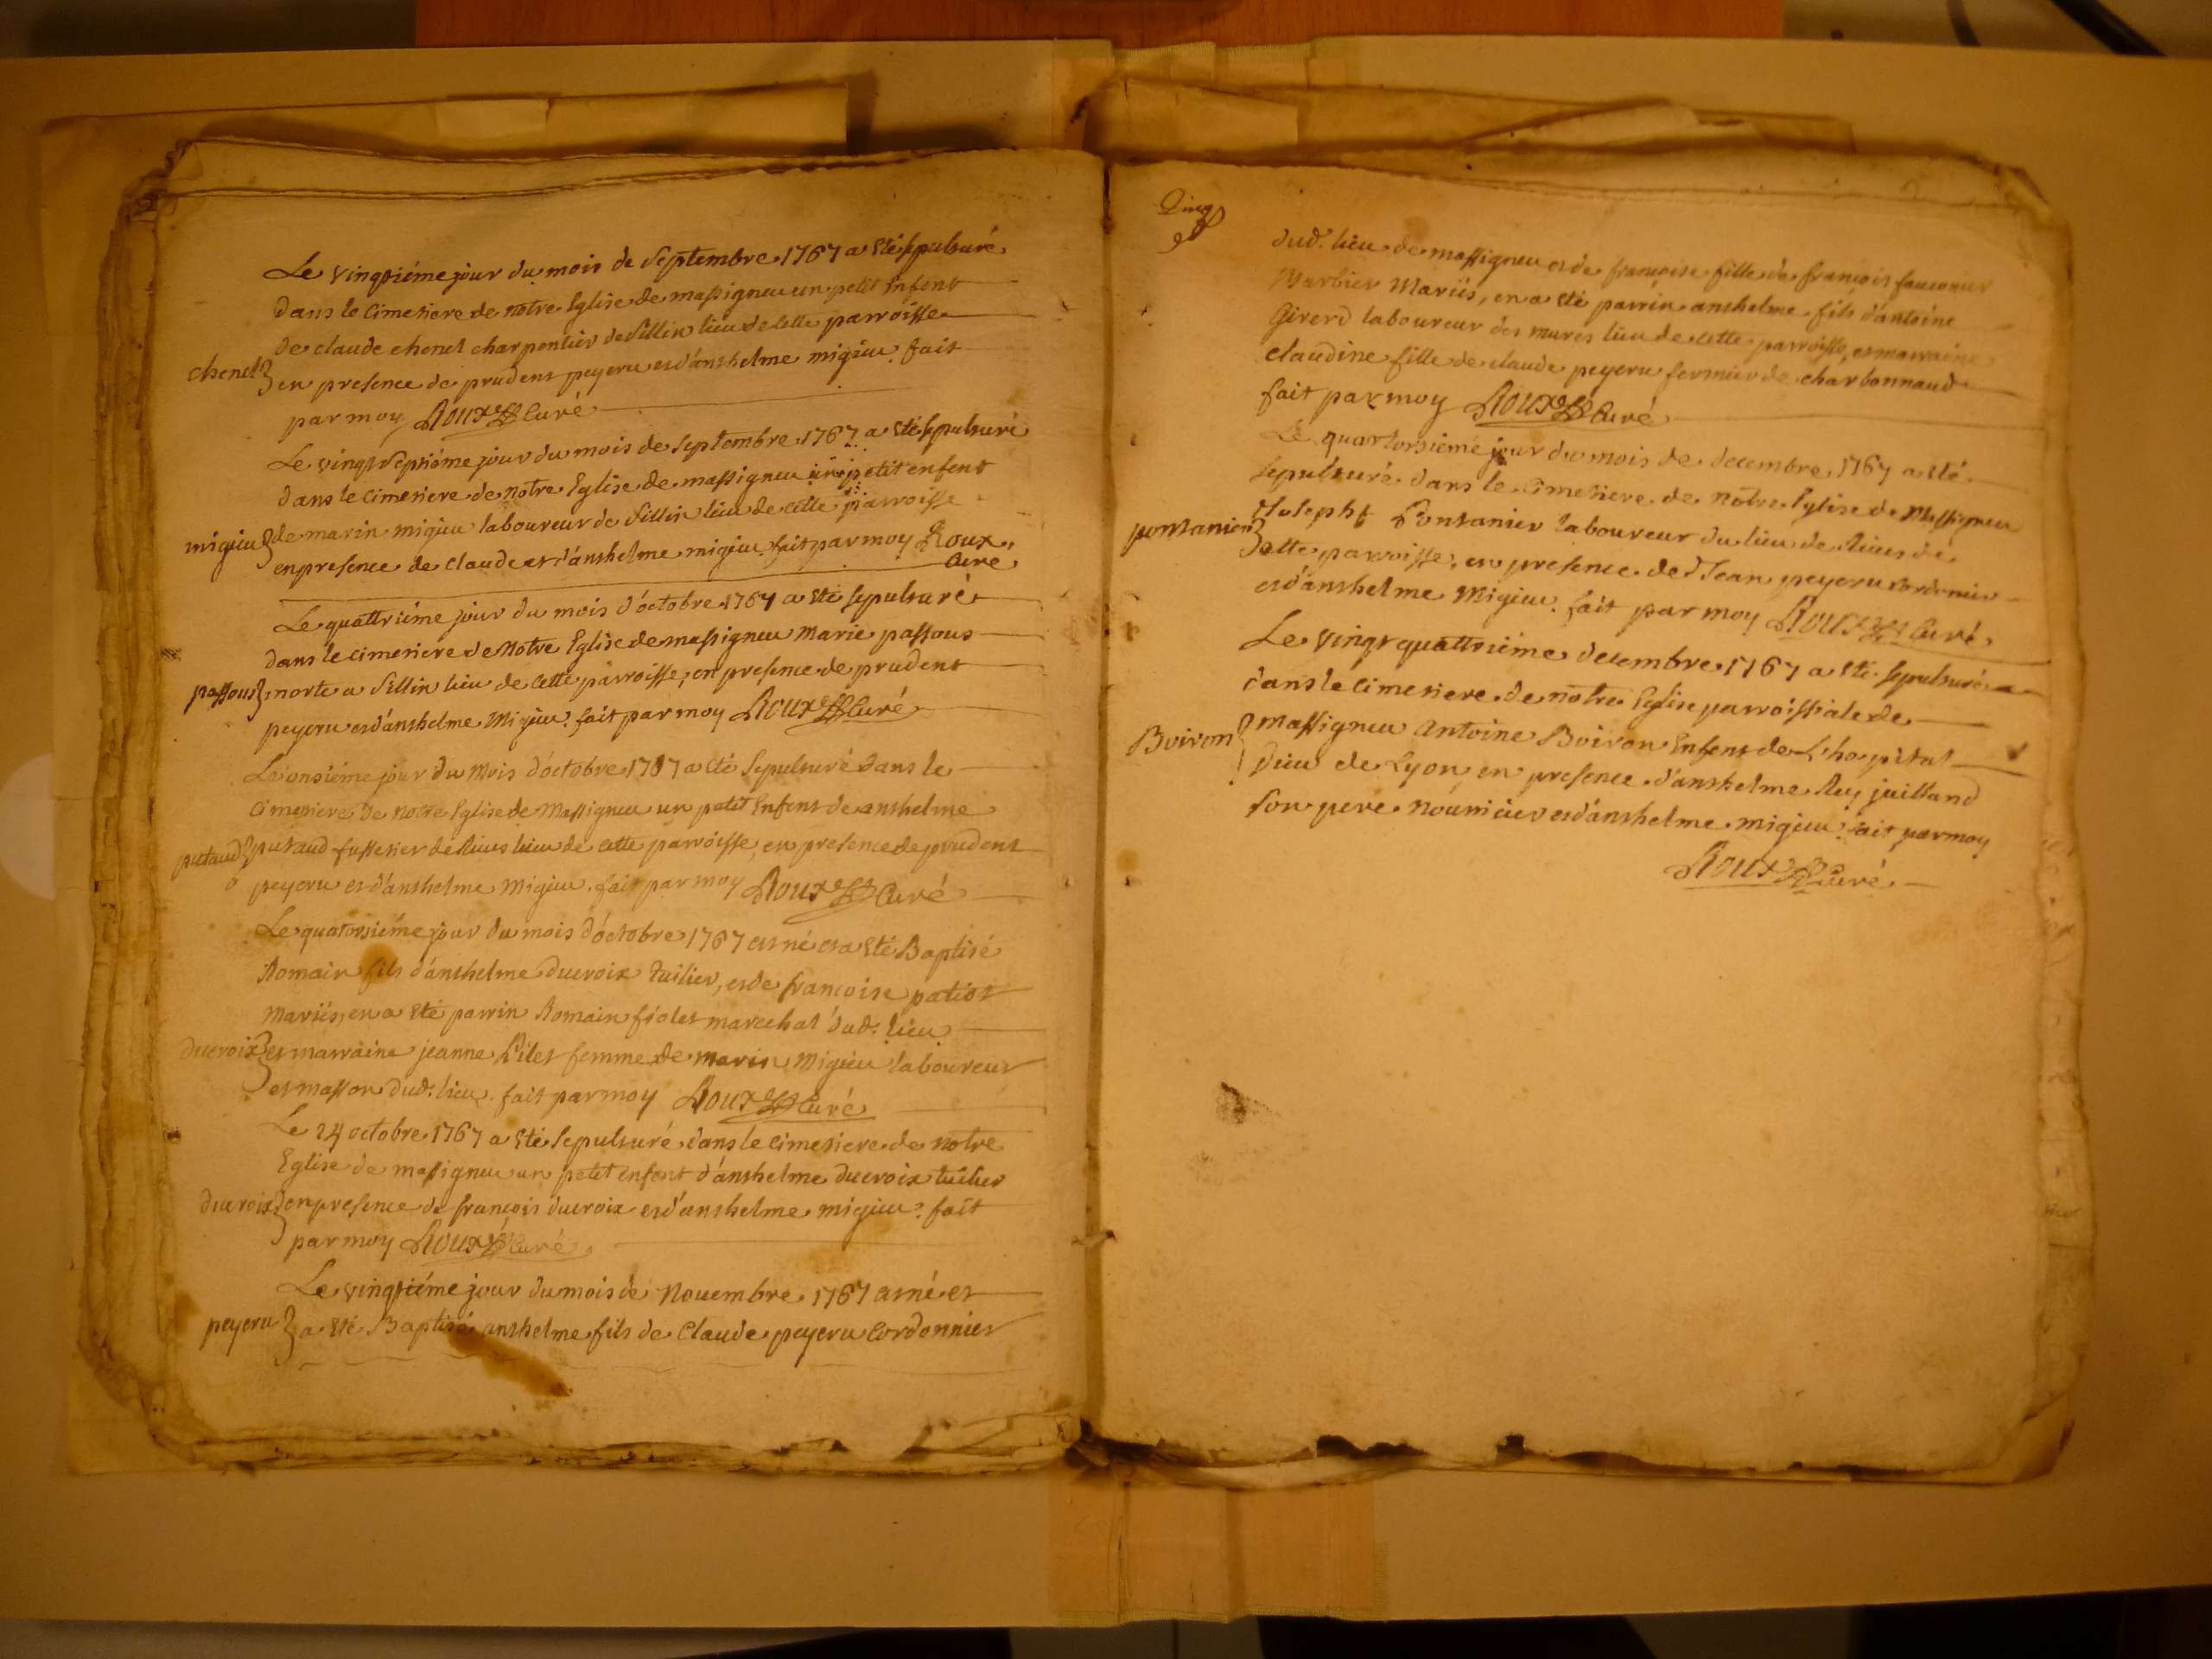 Le vingtiéme jour du mois de Septembre 1767 a eté sepulturé
dans le cimetiere de notre Eglise de massigneu un petit enfent
de claude chenel charpentier de Sillin lieu de cette parroisse
chenel en presence de prudent peyeru et d'anthelme migieu. fait
par moy Roux Curé
Le vingt septiéme jour du mois de septembre 1767 a eté sepulturé
dans le cimetiere de notre Eglise de massigneu un petit enfent
migieu de marin migieu laboureur de Sillin lieu de cette parroisse
en presence de claude et d'anthelme migieu. fait par moy Roux
Curé
Le quattriéme jour du mois d'octobre 1767 a eté sepulturé
dans le cimetiere de Notre Eglise de massigneu Marie passous
passous morte a Sillin lieu de cette parroisse, en presence de prudent
peyeru et d'anthelme Migieu. fait par moy Roux Curé
Le onsiéme jour du Mois d'octobre 1767 a eté Sepulturé dans le
Cimetiere de Notre Eglise de Massigneu un petit Enfent de anthelme
putaud putaud fustetier de lieu de cette parroisse, en presence de prudent
peyeru et d'anthelme Migieu. fait par moy Roux Curé
Le quatorsiéme jour du mois d'octobre 1767 est né et a eté Baptisé
Romain fils d'anthelme Ducroix tuilier, et de francoise patiot
Mariés, en a eté parrin Romain fiolet marechal dud. lieu
Ducroix et marraine jeanne femme de marin Migieu laboureur
et masson dud. lieu. fait par moy Roux Curé
Le 24 octobre 1767 a eté Sepulturé dans le cimetiere de notre
Eglise de massigneu un petit enfent d'anthelme Ducroix tuilier
Ducroix en presence de francois Ducroix et d'anthelme migieu. fait
par moy Roux Curé
Le vingtiéme jour du mois de Nouembre 1767 est né et
peyeru a eté Baptisé anthelme fils de Claude peyeru Cordonnier
Dud. lieu de massigneu et de francoise fille de francois
Mariés, en a eté parrin anthelme fils d'antoine
Girerd laboureur des mures lieu de cette parroisse, et marraine
claudine fille de claude peyeru fermier de charbonnaud
fait par moy Roux Curé
Le quartorsiéme jour du mois de decembre 1767 a eté
sepulturé dans le cimetiere de notre Eglise de Massigneu
pontanier Joseph Pontanier laboureur du lieu de de
cette parroisse, en presence de Jean peyeru Cordonier
et d'anthelme Migieu. fait par moy Roux Curé
Le vingt quattriéme decembre 1767 a eté sepulturé
dans le cimetiere de notre Eglise parroissiale de
Boiron massigneu Antoine Boiron Enfent de L'hopital
Dieu de Lyon en presence d'anthelme Rey juilland
son pere nourricier et d'anthelme migieu. fait par moy
Roux Curé